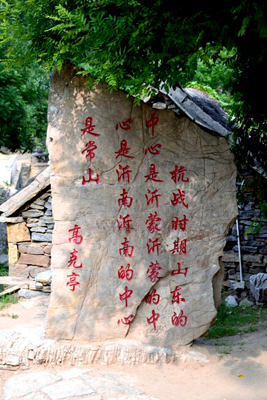 抗战时期山东的
中心是沂蒙沂蒙的中
心是沂南沂南的中心
是常山
高克亭